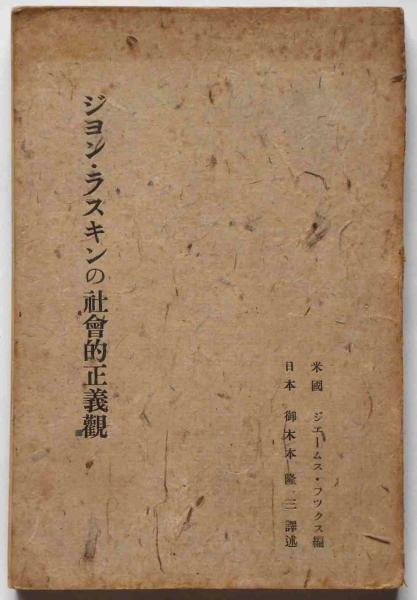 ジヨン・ラスキンの社會的正義觀
米國 ジエームス・フツクス編
日本 御木本隆三譯述